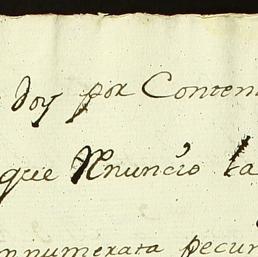 doy por Conten
que Renunció la
innumerata pecun